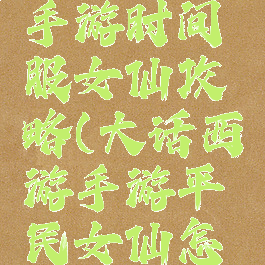 手游时间
服女仙攻
略(大话西
游手游平
民女仙怎